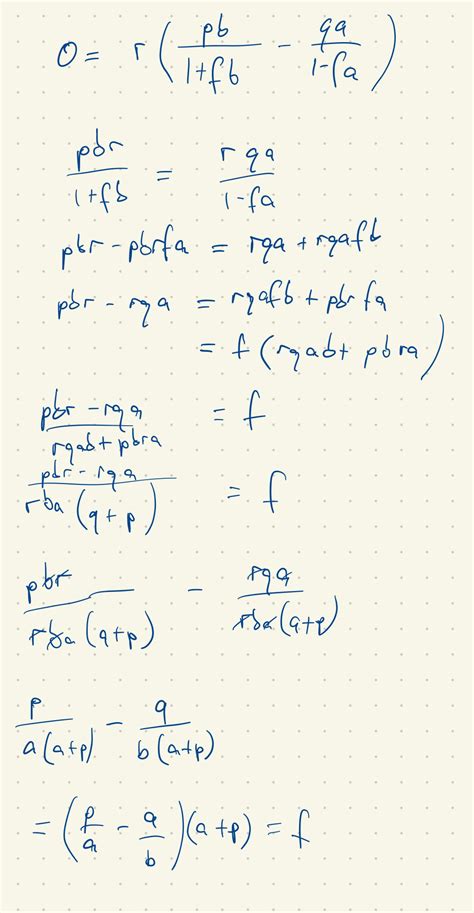 0 = r ( pb / 1+fb - qa / 1-fa )
pbr / 1+fb = rqa / 1-fa
pbr - pbrfa = rqa + rqafb
pbr - rqa = rqafb + pbrfa
= f (rqab + pbra)
pbr - rqa / rqab + pbra = f
pbr - rqa / rba (q+p) = f
pbr / rba (q+p) - rqa / rba (q+p)
p / a(q+p) - q / b(q+p)
= ( p/a - q/b ) (q+p) = f